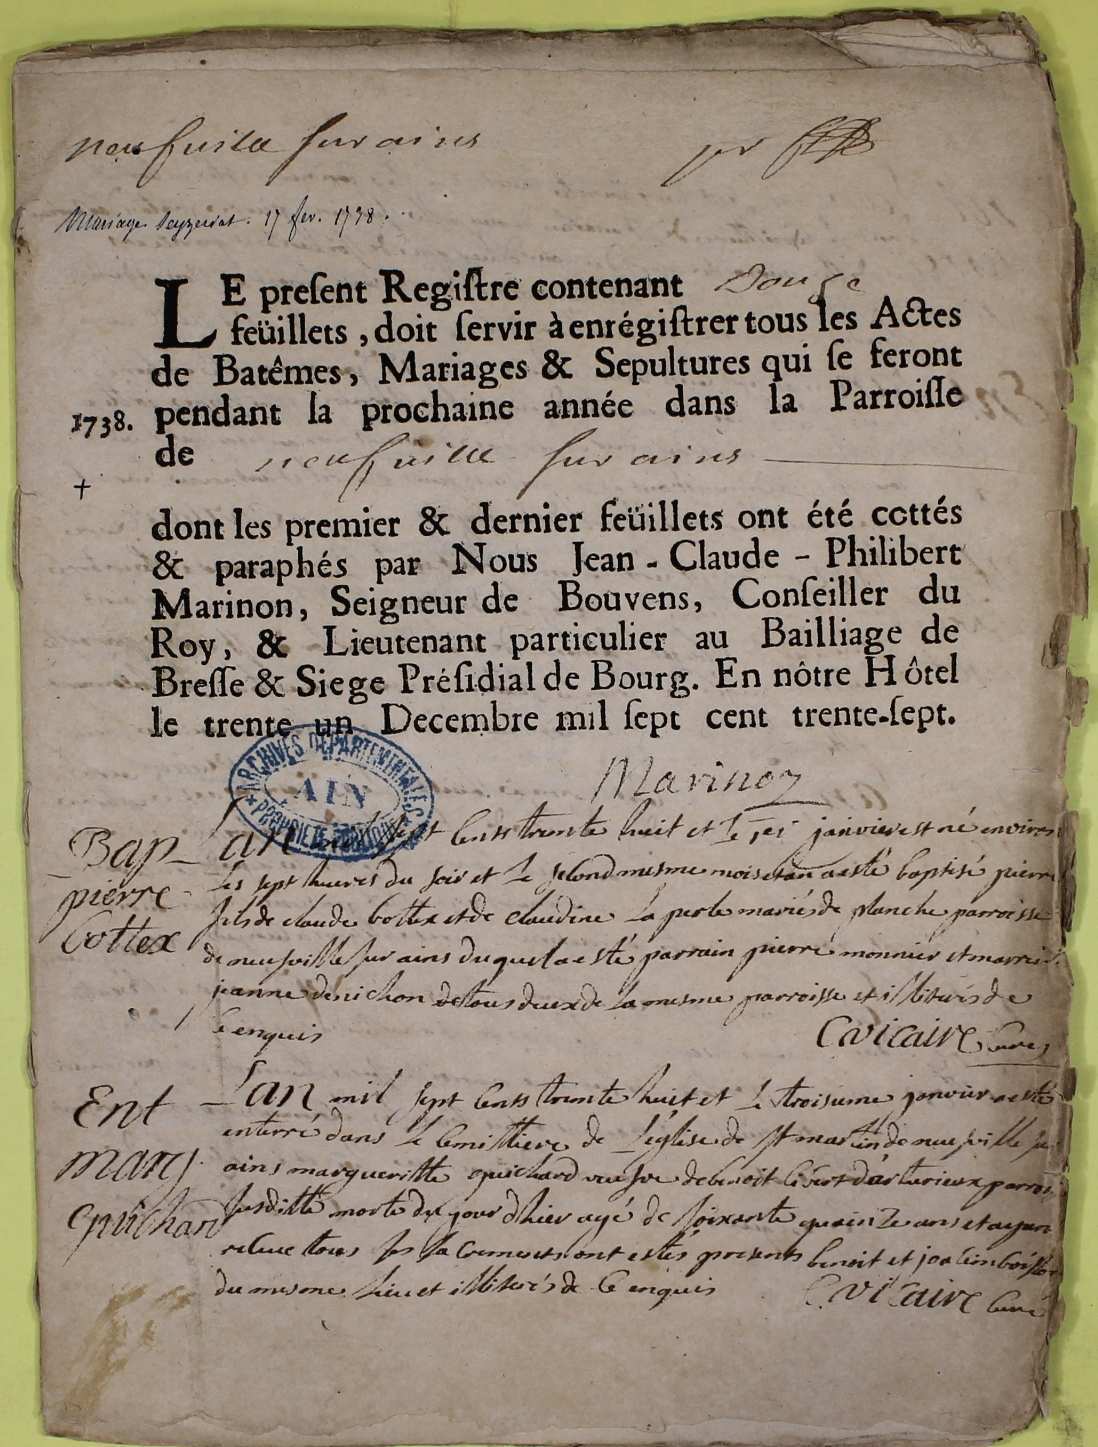 neufuille sur ains
pr
Mariage Seyzeriat. 17 fev. 1738.
LE preſent Regiſtre contenant Douze
feüillets, doit ſervir à enrégiſtrer tous les Actes
de Batêmes, Mariages & Sepultures qui ſe feront
1738. pendant la prochaine année dans la Parroiſſe
de neufuille sur ains
+
dont les premier & dernier feüillets ont été cottés
& paraphés par Nous Jean-Claude-Philibert
Marinon, Seigneur de Bouvens, Conſeiller du
Roy, & Lieutenant particulier au Bailliage de
Breſſe & Siege Préſidial de Bourg. En nôtre Hôtel
le trente un Decembre mil ſept cent trente-ſept.
ARCHIVES DEPARTEMENTALES
AIN
PROPRIETE PUBLIQUE
Marinon
Bap
pierre
Cottex
Lan sept cents trente huit et le janvier est né environ
les sept heures du soir et le second mesme mois et an a esté baptisé pierre
fils de claude Cottex et de claudine la perle mariés de planche parroisse
de neufville sur ains duquel a esté parrain pierre monnier et marrei
jeanne denichon de tous deux de la mesme parroisse et illiterés de
ce enquis
Cvicaire Curé
Ent
Marg
Guichard
Lan mil sept cents trente huit et le troisieme janvier a esté
enterré dans le cemittiere de l'eglise de st martin de neufville sur
ains margueritte guichard veufve de benoit parrois
susditte morte du jour d'hier agé de soixante quainze ans et ayan
relue tous ses sacrements ont estés presents benoit et
du mesme lieu et illiterés de ce enquis
Cvicaire Curé